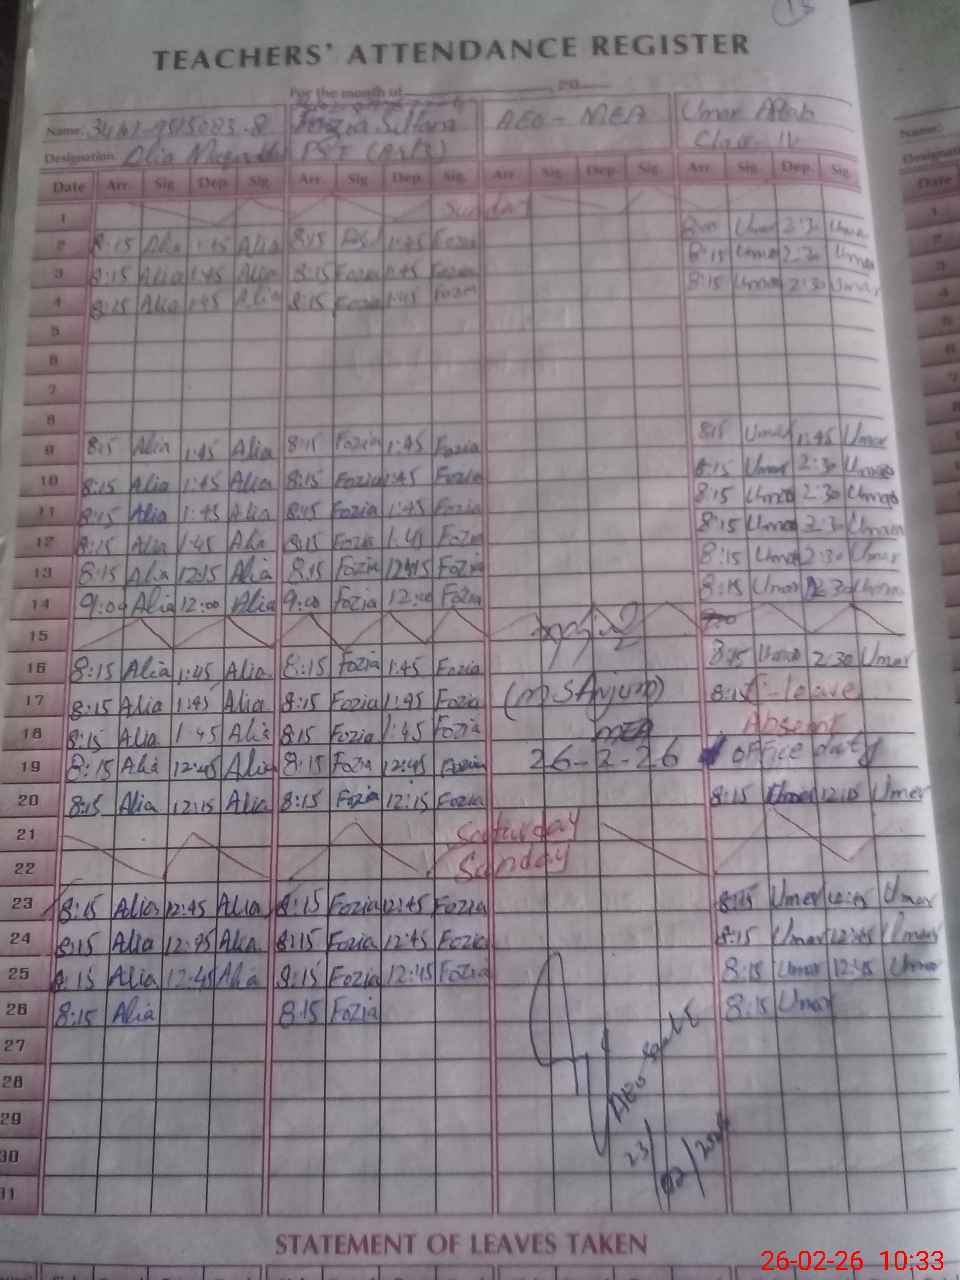 TEACHERS' ATTENDANCE REGISTER
For the month of 20
Name: Fozia Sultana AEO - MEA Umar
Designation Alia PST (Arts) Class-IV
Date Arr. Sig. Dep. Sig. Arr. Sig. Dep. Sig. Arr. Sig. Dep. Sig. Arr. Sig. Dep. Sig.
1 Sunday
2 8:15 Alia 1:45 Alia 8:15 1:45 Fozia Umar 2:30 Umar
3 8:15 Alia 1:45 Alia 8:15 Fozia 1:45 Fozia 8:15 Umar 2:30 Umar
4 8:15 Alia 1:45 Alia 8:15 Fozia 1:45 Fozia 8:15 Umar 2:30 Umar
5
6
7
8
9 8:15 Alia 1:45 Alia 8:15 Fozia 1:45 Fozia 8:15 Umar 1:45 Umar
10 8:15 Alia 1:45 Alia 8:15 Fozia 1:45 Fozia 8:15 Umar 2:30 Umar
11 8:15 Alia 1:45 Alia 8:15 Fozia 1:45 Fozia 8:15 Umar 2:30 Umar
12 8:15 Alia 1:45 Alia 8:15 Fozia 1:45 Fozia 8:15 Umar 2:30 Umar
13 8:15 Alia 12:15 Alia 8:15 Fozia 12:15 Fozia 8:15 Umar 2:30 Umar
14 9:00 Alia 12:00 Alia 9:00 Fozia 12:00 Fozia 8:15 Umar 2:30 Umar
15
16 8:15 Alia 1:45 Alia 8:15 Fozia 1:45 Fozia 8:15 Umar 2:30 Umar
17 8:15 Alia 1:45 Alia 8:15 Fozia 1:45 Fozia (M SAnjum) 8:15 C-leave
18 8:15 Alia 1:45 Alia 8:15 Fozia 1:45 Fozia MEA Absent
19 8:15 Alia 12:45 Alia 8:15 Fozia 12:45 Fozia 26-2-26 office duty
20 8:15 Alia 12:15 Alia 8:15 Fozia 12:15 Fozia 8:15 Umer 12:15 Umer
21 Saturday
22 Sunday
23 8:15 Alia 12:45 Alia 8:15 Fozia 12:45 Fozia 8:15 Umer 12:45 Umer
24 8:15 Alia 12:45 Alia 8:15 Fozia 12:45 Fozia 8:15 Umar 12:45 Umar
25 8:15 Alia 12:45 Alia 8:15 Fozia 12:45 Fozia 8:15 Umar 12:45 Umar
26 8:15 Alia 8:15 Fozia 8:15 Umar
27
28
29
30
31
AEO
23/02/2026
STATEMENT OF LEAVES TAKEN
26-02-26 10:33